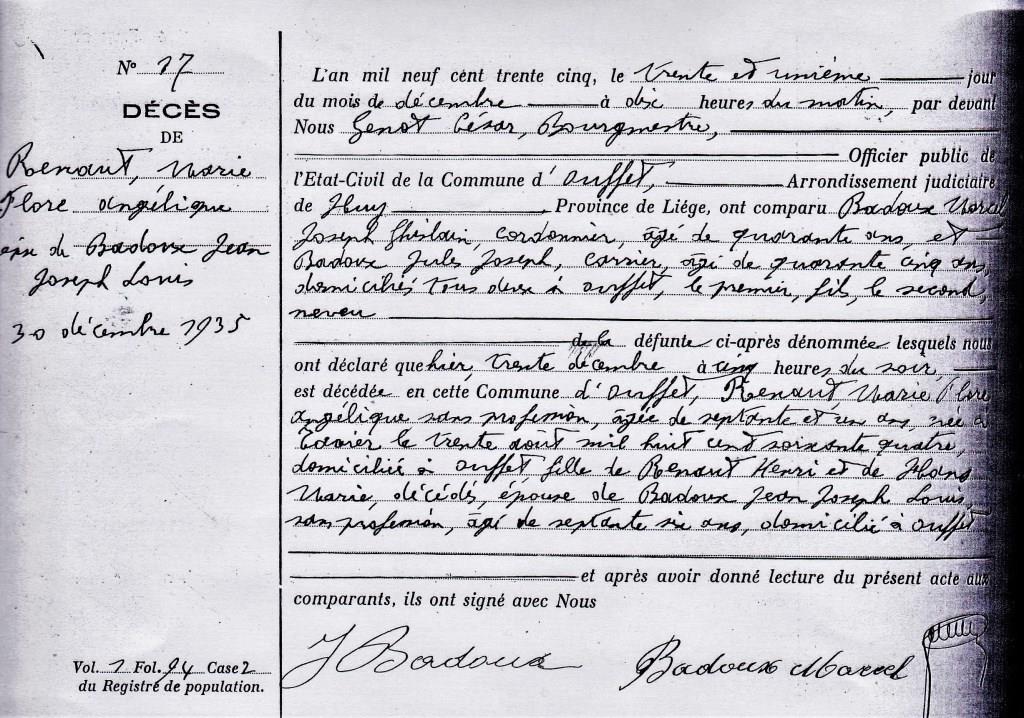 N° 17
DÉCÈS
DE
Renaut, Marie
Flore Angélique
épse de Badoux Jean
Joseph Louis
30 décembre 1935
Vol. 1 Fol. 94 Case 2
du Registre de population.
L'an mil neuf cent trente cinq, le trente et unième jour
du mois de décembre à dix heures du matin, par devant
Nous Genot César, Bourgmestre,
Officier public de
l'Etat-Civil de la Commune d' Ouffet, Arrondissement judiciaire
de Huy, Province de Liége, ont comparu Badoux Marcel
Joseph Ghislain, cordonnier, âgé de quarante ans, et
Badoux Jules Joseph, carrier, âgé de quarante cinq ans,
domiciliés tous deux à Ouffet, le premier, fils, le second,
neveu
de la défunte ci-après dénommée lesquels nous
ont déclaré que hier, trente décembre à cinq heures du soir,
est décédée en cette Commune d'Ouffet, Renaut Marie Flore
Angélique sans profession, âgée de septante et un ans, née à
Tavier le trente août mil huit cent soixante quatre,
domiciliée à Ouffet, fille de Renaut Henri et de Hans
Marie, décédés, épouse de Badoux Jean Joseph Louis
sans profession, âgé de septante six ans, domicilié à Ouffet
et après avoir donné lecture du présent acte aux
comparants, ils ont signé avec Nous
J Badoux Badoux Marcel